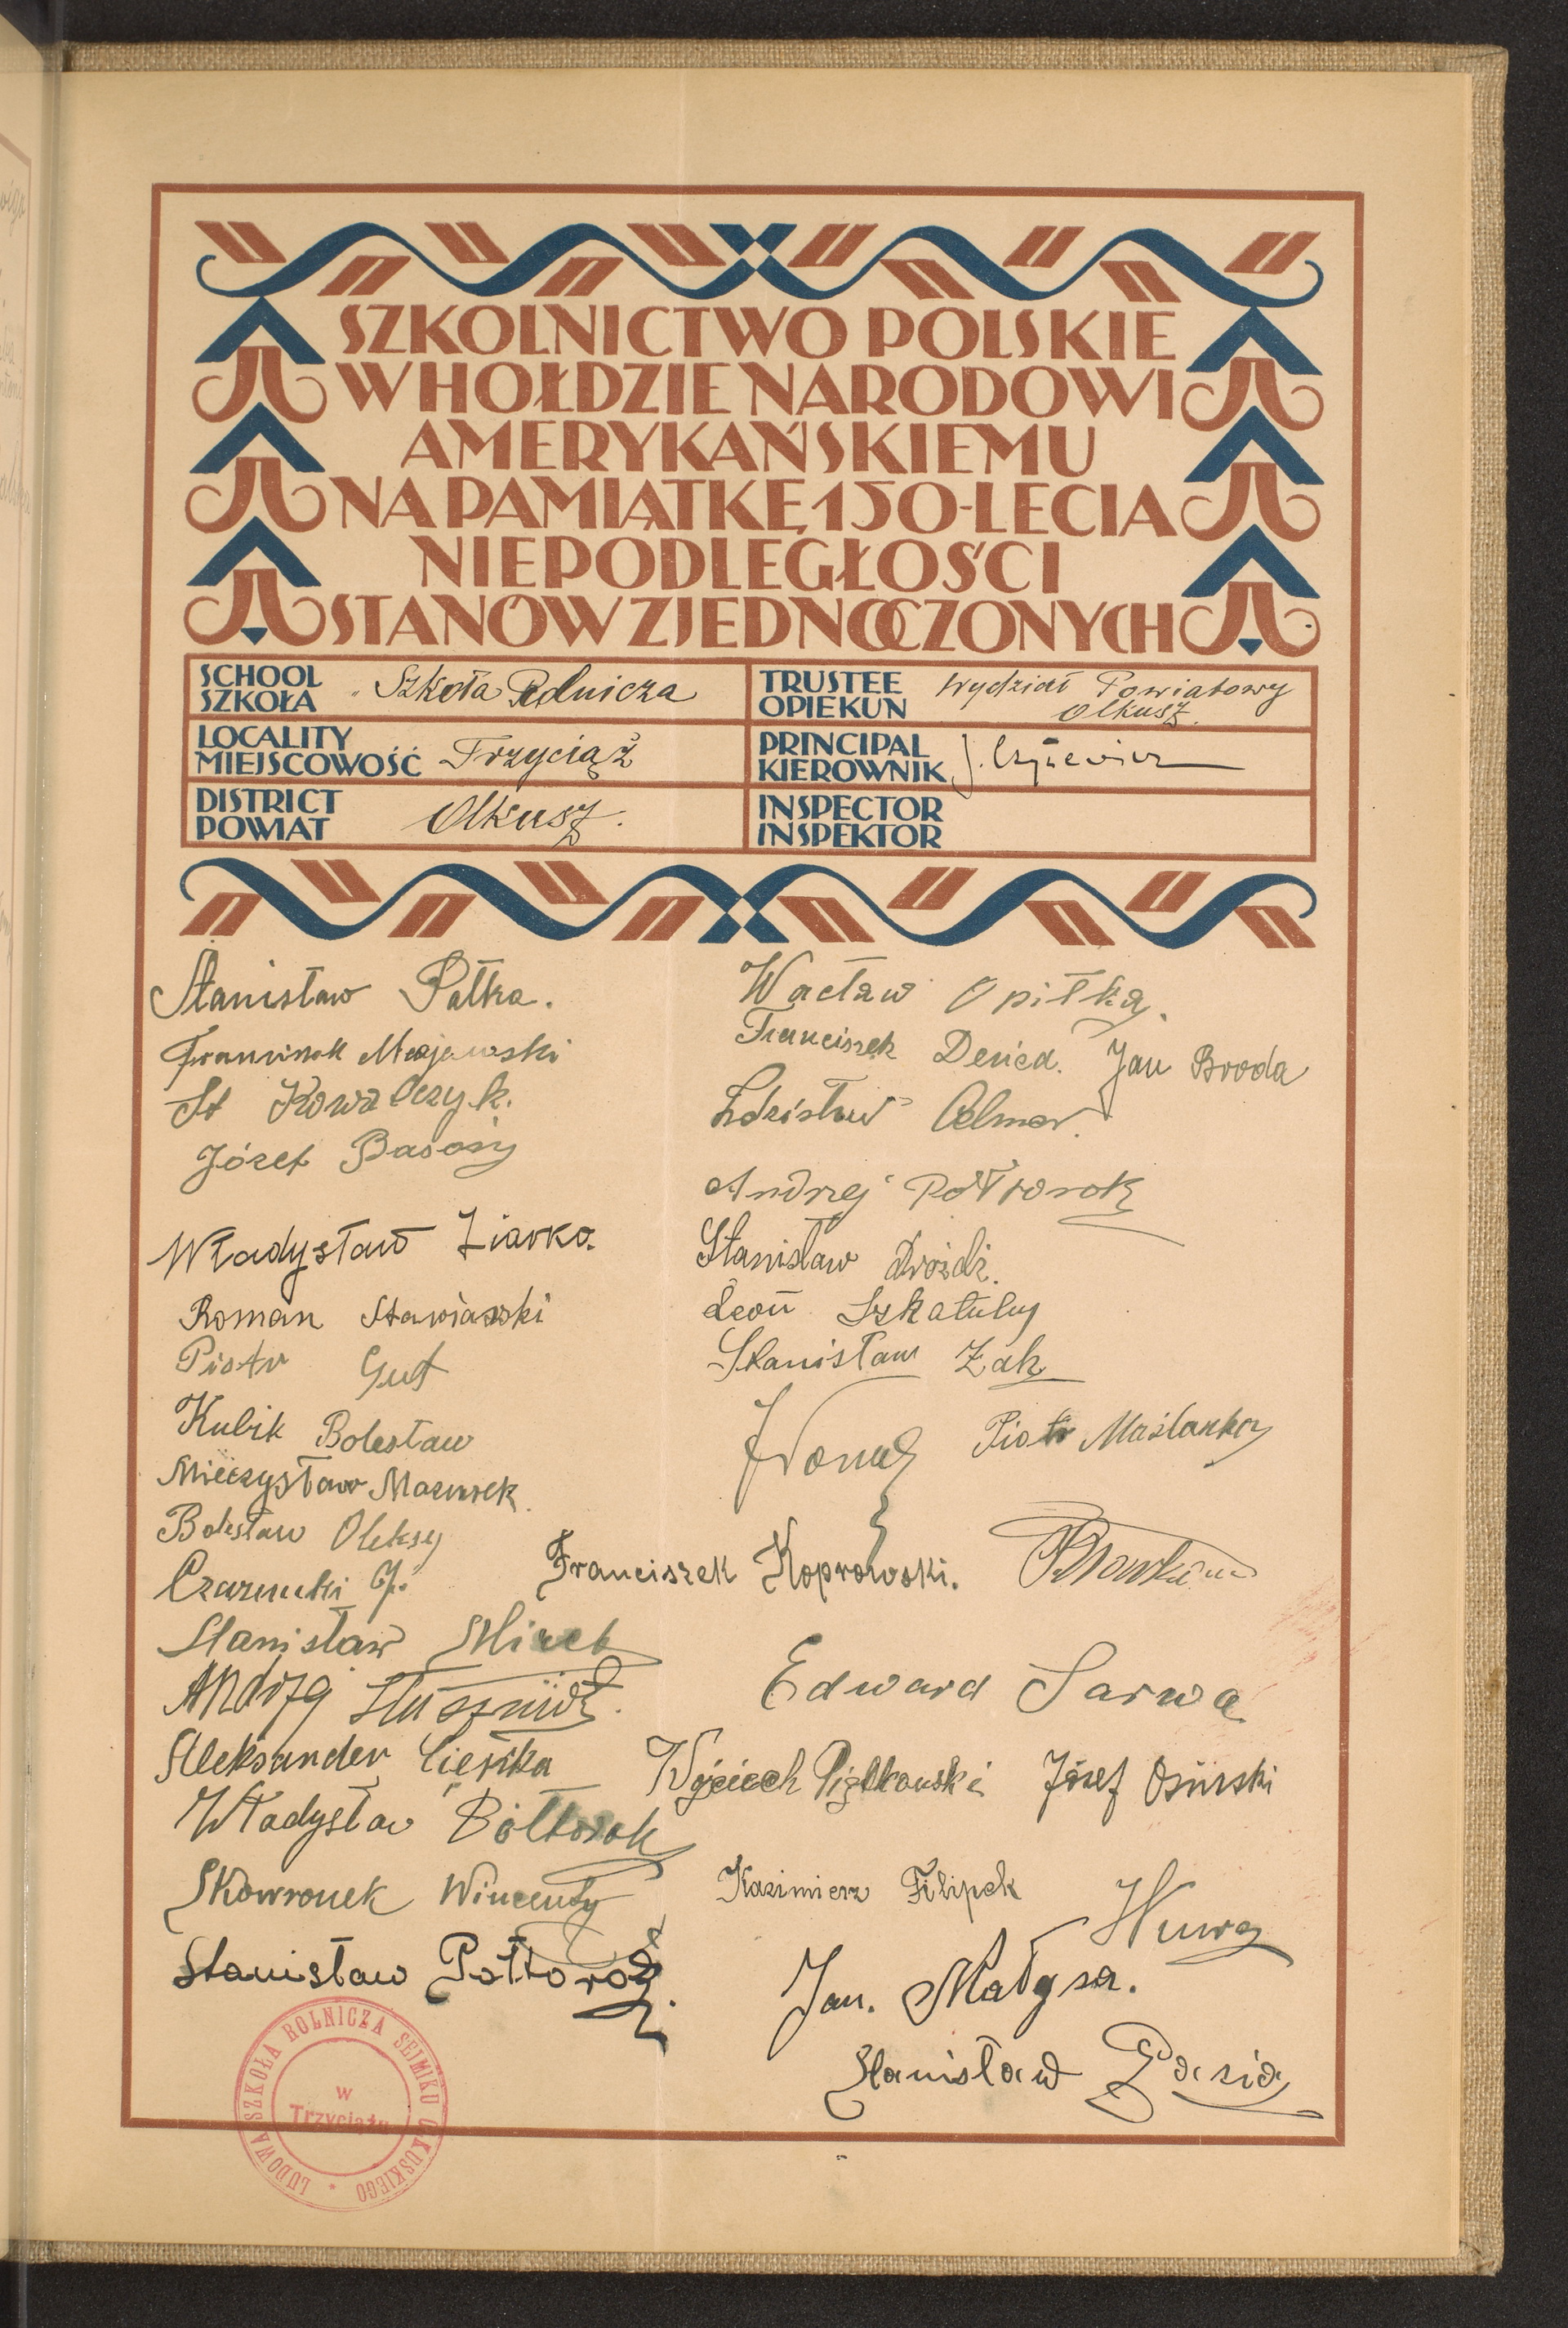 SZKOLNICTWO POLSKIE
W HOŁDZIE NARODOWI
AMERYKAŃSKIEMU
NA PAMIĄTKĘ 150-LECIA
NIEPODLEGŁOŚCI
STANÓW ZJEDNOCZONYCH
SCHOOL
SZKOŁA
Szkoła Rolnicza
TRUSTEE
OPIEKUN
Wydział Powiatowy
Olkusz.
LOCALITY
MIEJSCOWOŚĆ
Trzyciąż
PRINCIPAL
KIEROWNIK
DISTRICT
POWIAT
Olkusz.
INSPECTOR
INSPEKTOR
Stanisław Pałka.
Franciszek Majewski
St Kowalczyk.
Józef
Władysław Ziarko.
Roman Stawiarski
Piotr Gut
Kubik Bolesław
Mieczysław Mazurek
Bolesław Oleksy
Czarnecki J.
Stanisław Mirek
Andrzej
Aleksander Cieślka
Władysław Półtorak
Skowronek Wincenty
Stanisław Półtorak.
Wacław Opiłka.
Franciszek Jan Broda
Zdzisław
Andrzej Półtorak
Stanisław Dróżdż.
Leon Szkatuły
Stanisław Żak
Piotr Maślanka
Franciszek Koprowski.
Edward Sarwa
Wojciech Piątkowski Józef Osiński
Kazimierz Filipek
Jan. Małysa.
Stanisław
LUDOWA SZKOŁA ROLNICZA SEJMIKU OLKUSKIEGO
w
Trzyciążu